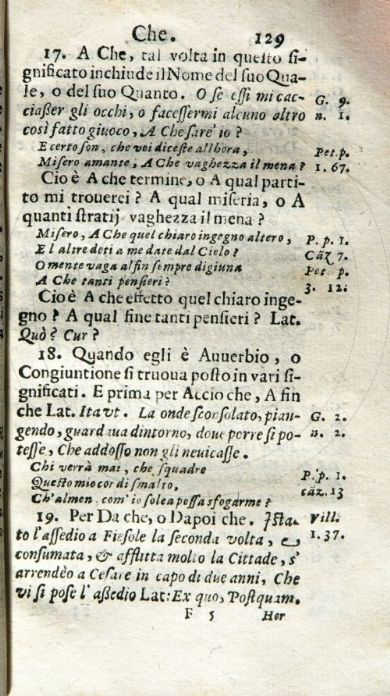 Che. 129
17. A Che, tal volta in questo si-
gnificato inchiude il Nome del suo Qua-
le, o del suo Quanto. O se essi mi cac-
ciaßer gli occhi, o facessermi alcuno altro
così fatto giuoco, A Che sare' io?
G. 9.
n. 1.
E certo son, che voi diceste allhora,
Misero amante, A Che vaghezza il mena?
Pet. p.
1. 67.
Cio è A che termine, o A qual parti-
to mi trouerei? A qual miseria, o A
quanti stratij vaghezza il mena?
Misero, A Che quel chiaro ingegno altero,
E l altre doti a me date dal Cielo?
P. p. 1.
Cāz 7.
O mente vaga al fin sempre digiuna
A Che tanti pensieri?
Pet. p.
3. 12.
Cio è A che effetto quel chiaro inge-
gno? A qual fine tanti pensieri? Lat.
Quò? Cur?
18. Quando egli è Auuerbio, o
Congiuntione si truoua posto in vari si-
gnificati. E prima per Accio che, A fin
che Lat. Itavt. La onde sconsolato, pian-
gendo, guardaua dintorno, doue porre si po-
tesse, Che addosso non gli neuicasse.
G. 2.
n. 2.
Chi verrà mai, che squadre
Questo mio cor di smalto,
Ch'almen, com' io solea possa sfogarme?
P. p. 1.
cāz. 13
19. Per Da che, o Dapoi che. Ista-
to l'assedio a Fiesole la seconda volta, &
consumata, & afflitta molto la Cittade, s'
arrendèo a Cesare in capo di due anni, Che
vi si pose l' aßedio Lat: Ex quo, Postquam.
Vill.
1. 37.
F 5 Hor